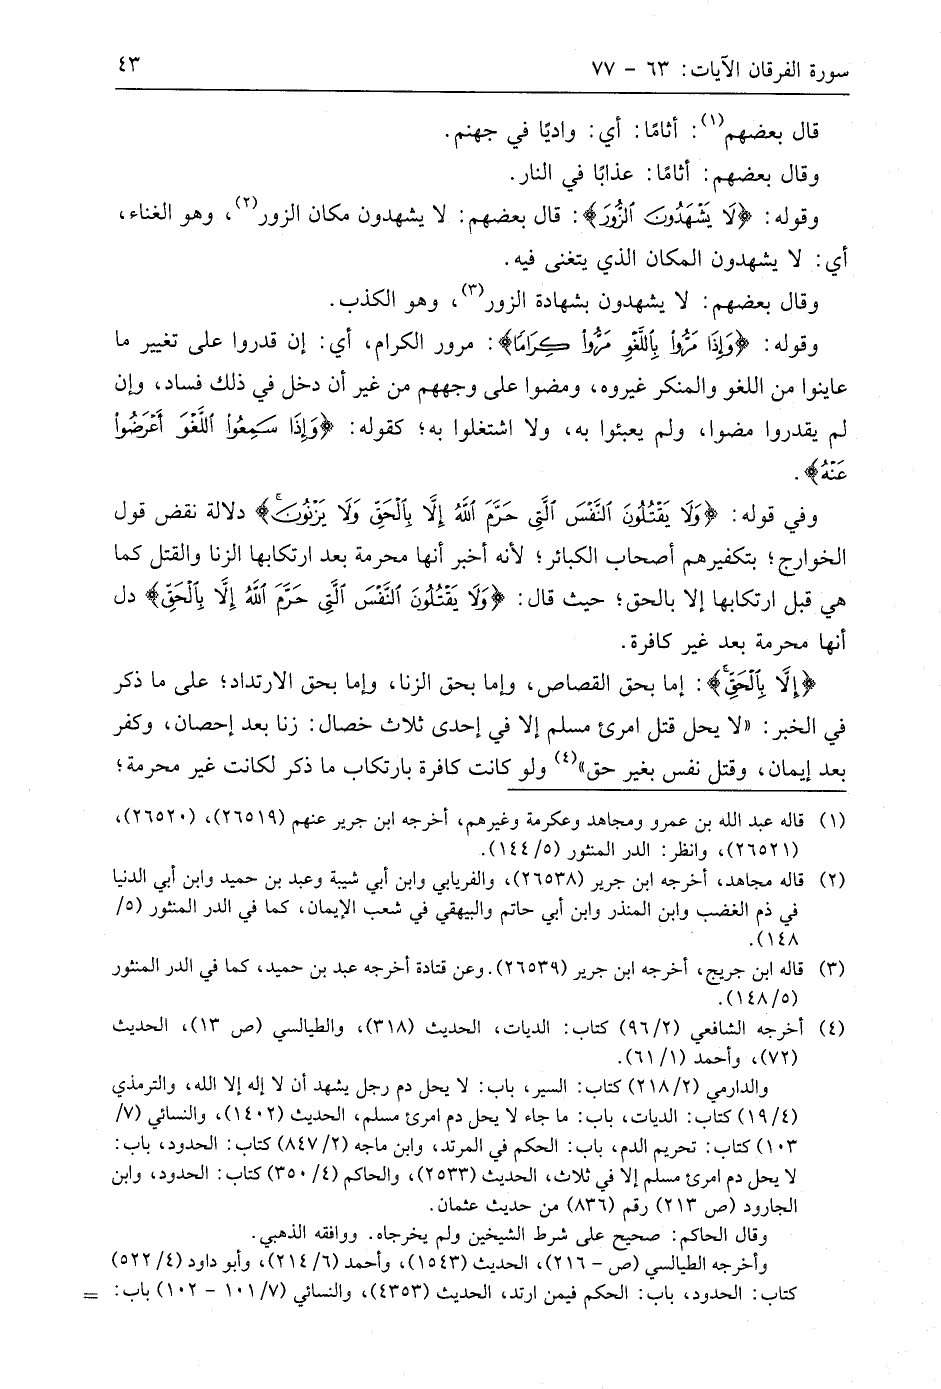 سورة الفرقان الآيات: ٦٣ - ٧٧
٤٣
قال بعضهم(١): أثامًا: أي: واديًا في جهنم.
وقال بعضهم: أثامًا: عذابًا في النار.
وقوله: ﴿لَا يَشْهَدُونَ ٱلزُّورَ﴾: قال بعضهم: لا يشهدون مكان الزور(٢)، وهو الغناء،
أي: لا يشهدون المكان الذي يتغنى فيه.
وقال بعضهم: لا يشهدون بشهادة الزور(٣)، وهو الكذب.
وقوله: ﴿وَإِذَا مَرُّوا۟ بِٱللَّغْوِ مَرُّوا۟ كِرَامًا﴾: مرور الكرام، أي: إن قدروا على تغيير ما
عاينوا من اللغو والمنكر غيروه، ومضوا على وجههم من غير أن دخل في ذلك فساد، وإن
لم يقدروا مضوا، ولم يعبئوا به، ولا اشتغلوا به؛ كقوله: ﴿وَإِذَا سَمِعُوا۟ ٱللَّغْوَ أَعْرَضُوا۟
عَنْهُ﴾.
وفي قوله: ﴿وَلَا يَقْتُلُونَ ٱلنَّفْسَ ٱلَّتِي حَرَّمَ ٱللَّهُ إِلَّا بِٱلْحَقِّ وَلَا يَزْنُونَۚ﴾ دلالة نقض قول
الخوارج؛ بتكفيرهم أصحاب الكبائر؛ لأنه أخبر أنها محرمة بعد ارتكابها الزنا والقتل كما
هي قبل ارتكابها إلا بالحق؛ حيث قال: ﴿وَلَا يَقْتُلُونَ ٱلنَّفْسَ ٱلَّتِي حَرَّمَ ٱللَّهُ إِلَّا بِٱلْحَقِّ﴾ دل
أنها محرمة بعد غير كافرة.
﴿إِلَّا بِٱلْحَقِّۚ﴾: إما بحق القصاص، وإما بحق الزنا، وإما بحق الارتداد؛ على ما ذكر
في الخبر: «لا يحل قتل امرئ مسلم إلا في إحدى ثلاث خصال: زنا بعد إحصان، وكفر
بعد إيمان، وقتل نفس بغير حق»(٤) ولو كانت كافرة بارتكاب ما ذكر لكانت غير محرمة؛
(١) قاله عبد الله بن عمرو ومجاهد وعكرمة وغيرهم، أخرجه ابن جرير عنهم (٢٦٥١٩)، (٢٦٥٢٠)،
(٢٦٥٢١)، وانظر: الدر المنثور (٥/ ١٤٤).
(٢) قاله مجاهد، أخرجه ابن جرير (٢٦٥٣٨)، والفريابي وابن أبي شيبة وعبد بن حميد وابن أبي الدنيا
في ذم الغضب وابن المنذر وابن أبي حاتم والبيهقي في شعب الإيمان، كما في الدر المنثور (٥/
١٤٨).
(٣) قاله ابن جريج، أخرجه ابن جرير (٢٦٥٣٩). وعن قتادة أخرجه عبد بن حميد، كما في الدر المنثور
(٥/ ١٤٨).
(٤) أخرجه الشافعي (٢/ ٩٦) كتاب: الديات، الحديث (٣١٨)، والطيالسي (ص ١٣)، الحديث
(٧٢)، وأحمد (١/ ٦١).
والدارمي (٢/ ٢١٨) كتاب: السير، باب: لا يحل دم رجل يشهد أن لا إله إلا الله، والترمذي
(٤/ ١٩) كتاب: الديات، باب: ما جاء لا يحل دم امرئ مسلم، الحديث (١٤٠٢)، والنسائي (٧/
١٠٣) كتاب: تحريم الدم، باب: الحكم في المرتد، وابن ماجه (٢/ ٨٤٧) كتاب: الحدود، باب:
لا يحل دم امرئ مسلم إلا في ثلاث، الحديث (٢٥٣٣)، والحاكم (٤/ ٣٥٠) كتاب: الحدود، وابن
الجارود (ص ٢١٣) رقم (٨٣٦) من حديث عثمان.
وقال الحاكم: صحيح على شرط الشيخين ولم يخرجاه. ووافقه الذهبي.
وأخرجه الطيالسي (ص - ٢١٦)، الحديث (١٥٤٣)، وأحمد (٦/ ٢١٤)، وأبو داود (٤/ ٥٢٢)
كتاب: الحدود، باب: الحكم فيمن ارتد، الحديث (٤٣٥٣)، والنسائي (٧/ ١٠١ - ١٠٢) باب: =